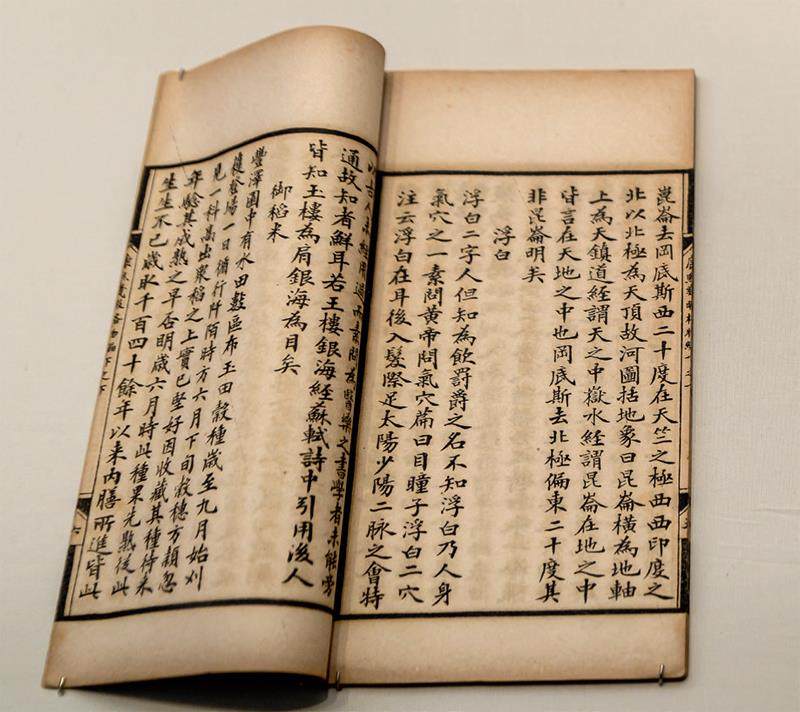 崑崙去岡底斯西二十度在天竺之極西西印度之
北以北極為天頂故河圖括地象曰崑崙橫為地軸
上為天鎮道經謂天之中嶽水經謂崑崙在地之中
皆言在天地之中也岡底斯去北極偏東二十度其
非崑崙明矣
浮白
浮白二字人但知為飲罰爵之名不知浮白乃人身
氣穴之一素問黃帝問氣穴篇曰目瞳子浮白二穴
注云浮白在耳後入髮際足太陽少陽二脉之會特
以古人未經用過而素問為醫藥之書學者未能旁
通故知者鮮耳若玉樓銀海經蘇軾詩中引用後人
皆知玉樓為肩銀海為目矣
御稻米
豐澤園中有水田數區布玉田穀種歲至九月始刈
穫登場一日循行阡陌時方六月下旬穀穗方穎忽
見一科高出眾稻之上實已堅好因收藏其種待來
年驗其成熟之早否明歲六月時此種果先熟從此
生生不已歲取千百四十餘年以來內膳所進皆此